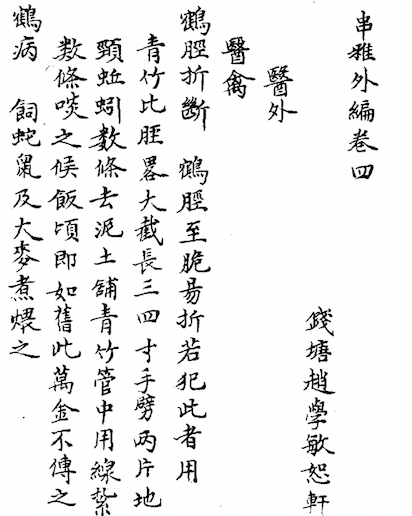 串雅外編卷四
錢塘趙學敏恕軒
醫外
醫禽
鶴脛折斷 鶴脛至脆易折若犯此者用
青竹比脛畧大截長三四寸手劈兩片地
頸蚯蚓數條去泥土舖青竹管中用線紮
數條啖之候飯頃即如舊此萬金不傳之
鶴病 飼蛇鼠及大麥煮煨之